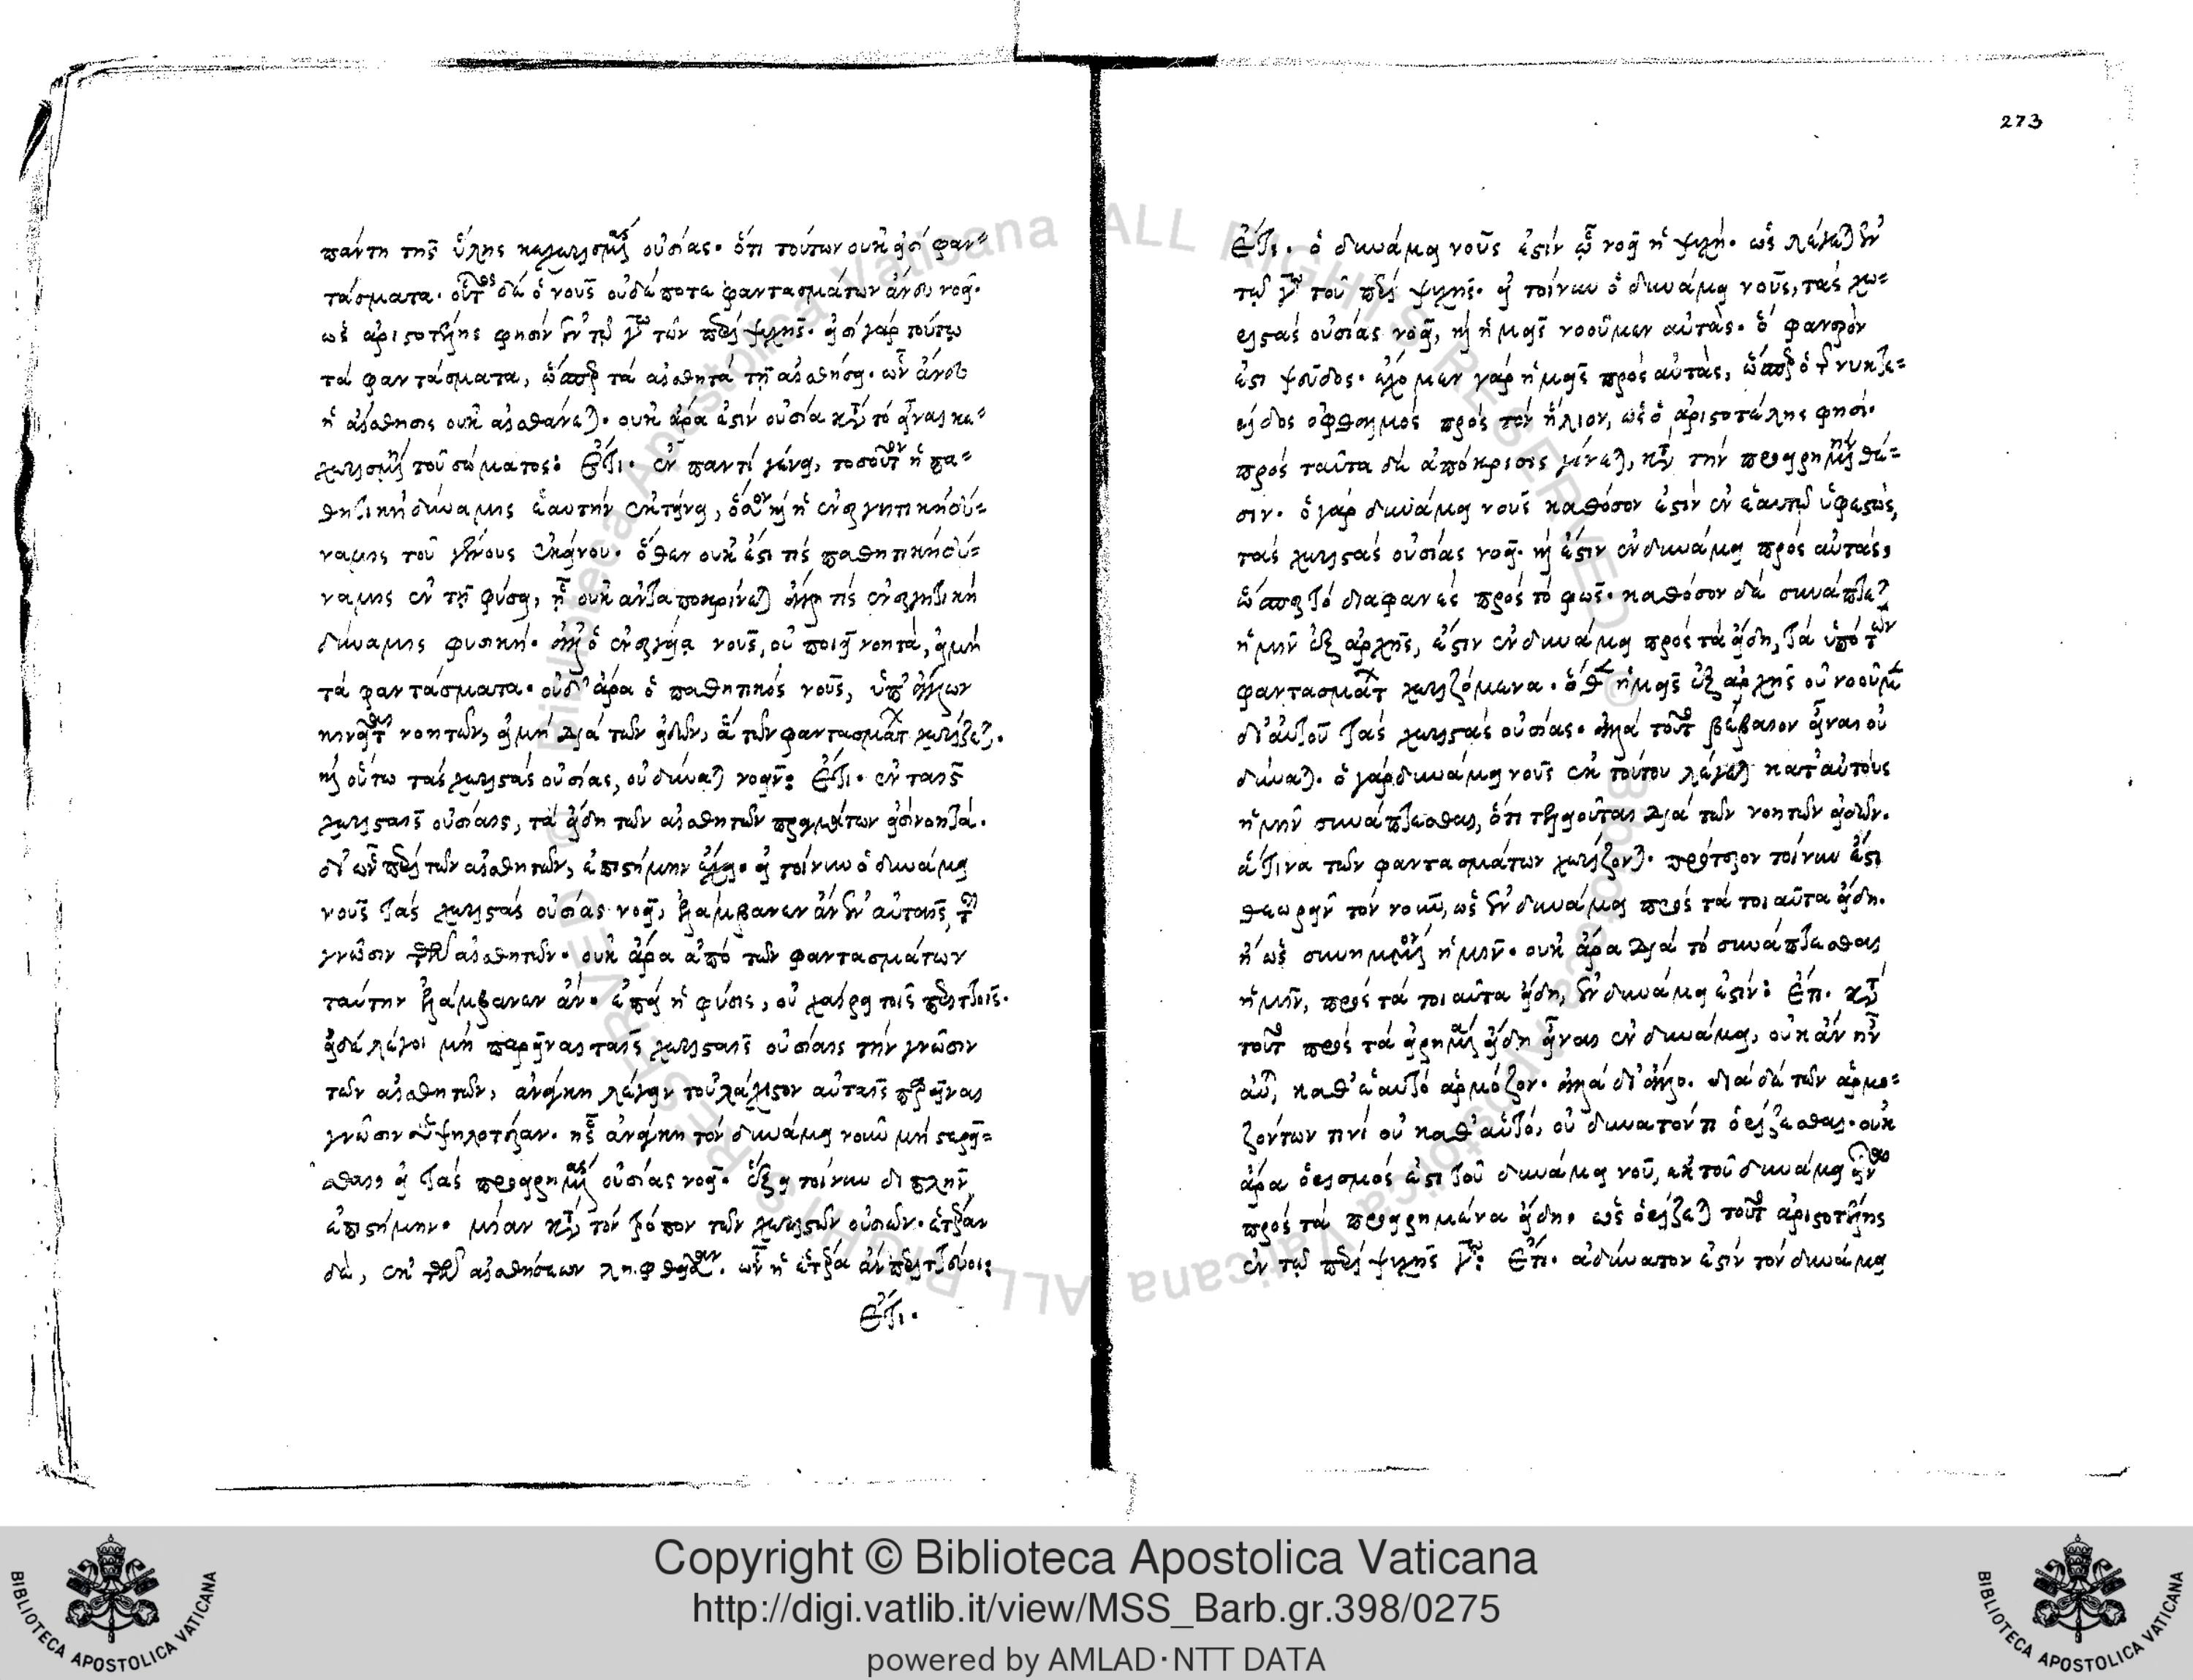 πάντη τῆς ὕλης κεχωρισμένας οὐσίας. ὅτι τούτων οὐκ εἰσί φαν=
τάσματα. οὗτος δὲ ὁ νοῦς οὐδέποτε φαντασμάτων ἄνευ νοεῖ.
ὡς ἀριστοτέλης φησίν ἐν τῷ γω τῶν περί ψυχῆς. εἰσί γάρ τούτω
τά φαντάσματα, ὥσπερ τά αἰσθητά τῇ αἰσθήσει. ὧν ἄνευ
ἡ αἴσθησις οὐκ αἰσθάνεται. οὐκ ἄρα ἐστίν οὐσία κατά τό εἶναι κε=
χωρισμένη τοῦ σώματος: Ἔτι. ἐν παντί γένει, τοσοῦτον ἡ πα=
θητική δύναμις ἑαυτήν ἐκτείνει, ὅσον καί ἡ ἐνεργητική δύ=
ναμις τοῦ γένους ἐκείνου. ὅθεν οὐκ ἔστι τίς παθητική δύ=
ναμις ἐν τῇ φύσει, ᾗ οὐκ ἀνταποκρίνεται ἄλλη τίς ἐνεργητική
δύναμις φυσική. ἀλλ' ὁ ἐνεργείᾳ νοῦς, οὐ ποιεῖ νοητά, εἰμή
τά φαντάσματα. οὐδ' ἄρα ὁ παθητικός νοῦς, ὑπ' ἄλλων
κινεῖται νοητῶν, εἰμή διά τῶν εἰδῶν, ἃ τῶν φαντασμάτων χωρίζεται.
καί οὕτω τάς χωριστάς οὐσίας, οὐ δύναται νοεῖν: Ἔτι. ἐν ταῖς
χωρισταῖς οὐσίαις, τά εἴδη τῶν αἰσθητῶν πραγμάτων εἰσί νοητά.
δι' ὧν περί τῶν αἰσθητῶν, ἐπιστήμην ἔχει. εἰ τοίνυν ὁ δυνάμει
νοῦς τάς χωριστάς οὐσίας νοεῖ, ἐλάμβανεν ἄν ἐν αὐταῖς, τήν
γνῶσιν τῶν αἰσθητῶν. οὐκ ἄρα ἀπό τῶν φαντασμάτων
ταύτην ἐλάμβανεν ἄν. ἐπεί ἡ φύσις, οὐ χαίρει τοῖς περιττοῖς.
εἰ δέ λέγοι μή παρεῖναι ταῖς χωρισταῖς οὐσίαις τήν γνῶσιν
τῶν αἰσθητῶν, ἀνάγκη λέγειν τοὐλάχιστον αὐταῖς παρεῖναι
γνῶσιν ὑψηλοτέραν. ἧς ἀνάγκη τόν δυνάμει νοῦν μή στερεῖ=
σθαι, εἰ τάς προειρημένας οὐσίας νοεῖ. ἕξει τοίνυν διπλῆν
ἐπιστήμην. μίαν κατά τόν τρόπον τῶν χωριστῶν οὐσιῶν. ἑτέραν
δέ, ἐκ τῶν αἰσθήσεων ληφθεῖσαν. ὧν ἡ ἑτέρα ἄν περιττεύοι:
Ἔτι.
273
Ἔτι. ὁ δυνάμει νοῦς ἐστίν ᾧ νοεῖ ἡ ψυχή. ὡς λέγεται ἐν
τῷ γω τοῦ περί ψυχῆς. εἰ τοίνυν ὁ δυνάμει νοῦς, τάς χω=
ριστάς οὐσίας νοεῖ, καί ἡμεῖς νοοῦμεν αὐτάς. ὅ φανερόν
ἐστι ψεῦδος. ἔχομεν γάρ ἡμεῖς πρός αὐτάς, ὥσπερ ὁ τ νυκτε=
ρίδος ὀφθαλμός πρός τόν ἥλιον, ὡς ὁ ἀριστοτέλης φησί.
πρός ταῦτα δέ ἀπόκρισις γίνεται, κατά τήν προειρημένην θέ=
σιν. ὁ γάρ δυνάμει νοῦς καθόσον ἐστίν ἐν ἑαυτῷ ὑφεστώς,
τάς χωριστάς οὐσίας νοεῖ. καί ἔστιν ἐν δυνάμει πρός αὐτάς,
ὥσπερ τό διαφανές πρός τό φῶς. καθόσον δέ συνάπτεται
ἡμῖν ἐξ ἀρχῆς, ἔστιν ἐν δυνάμει πρός τά εἴδη, τά ὑπό τῶν
φαντασμάτων χωριζόμενα. ὅθεν ἡμεῖς ἐξ ἀρχῆς οὐ νοοῦμεν
δι' αὐτοῦ τάς χωριστάς οὐσίας. ἀλλά τοῦτο βέβαιον εἶναι οὐ
δύναται. ὁ γάρ δυνάμει νοῦς ἐκ τούτου λέγεται κατ' αὐτούς
ἡμῖν συνάπτεσθαι, ὅτι τελειοῦται διά τῶν νοητῶν εἰδῶν.
ἅτινα τῶν φαντασμάτων χωρίζονται. πρότερον τοίνυν ἔστι
θεωρεῖν τόν νοῦν, ὡς ἐν δυνάμει πρός τά τοιαῦτα εἴδη.
ἤ ὡς συνημμένον ἡμῖν. οὐκ ἄρα διά τό συνάπτεσθαι
ἡμῖν, πρός τά τοιαῦτα εἴδη, ἐν δυνάμει ἐστίν: Ἔτι. κατά
τοῦτο πρός τά εἰρημένα εἴδη εἶναι ἐν δυνάμει, οὐκ ἄν ἦν
αὐτῷ, καθ' ἑαυτό ἁρμόζον. ἀλλά δι' ἄλλο. διά δέ τῶν ἁρμο=
ζόντων τινί οὐ καθ' αὑτό, οὐ δυνατόν τι ὁρίζεσθαι. οὐκ
ἄρα ὁρισμός ἐστι τοῦ δυνάμει νοῦ, ἐκ τοῦ δυνάμει εἶναι
πρός τά προειρημένα εἴδη. ὡς ὁρίζεται τοῦτο ἀριστοτέλης
ἐν τῷ περί ψυχῆς γω: Ἔτι. ἀδύνατον ἐστίν τόν δυνάμει
Biblioteca Apostolica Vaticana ALL RIGHTS RESERVED
Copyright © Biblioteca Apostolica Vaticana
http://digi.vatlib.it/view/MSS_Barb.gr.398/0275
powered by AMLAD·NTT DATA
BIBLIOTECA APOSTOLICA VATICANA
BIBLIOTECA APOSTOLICA VATICANA